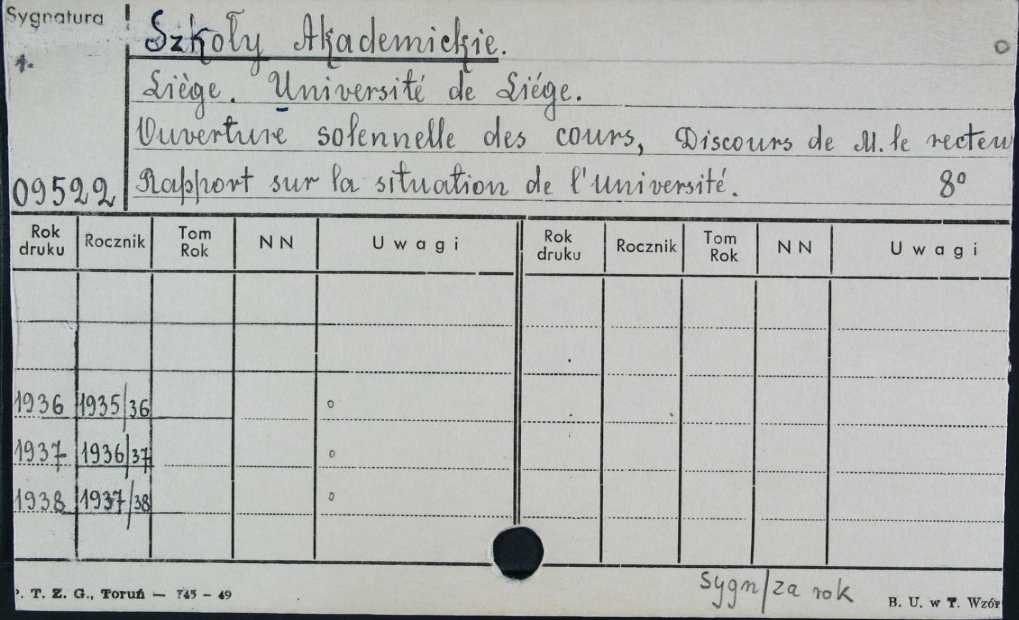 Sygnatura
Szkoły Akademickie.
Liège. Université de Liége.
Ouverture solennelle des cours, Discours de M. le recteu
09522 Rapport sur la situation de l'université. 8°
Rok druku Rocznik Tom Rok NN Uwagi Rok druku Rocznik Tom Rok NN Uwagi
1936 1935/36 o
1937 1936/37 o
1938 1937/38 o
sygn/za rok
. T. Z. G., Toruń — 745 – 49 B. U. w T. Wzór